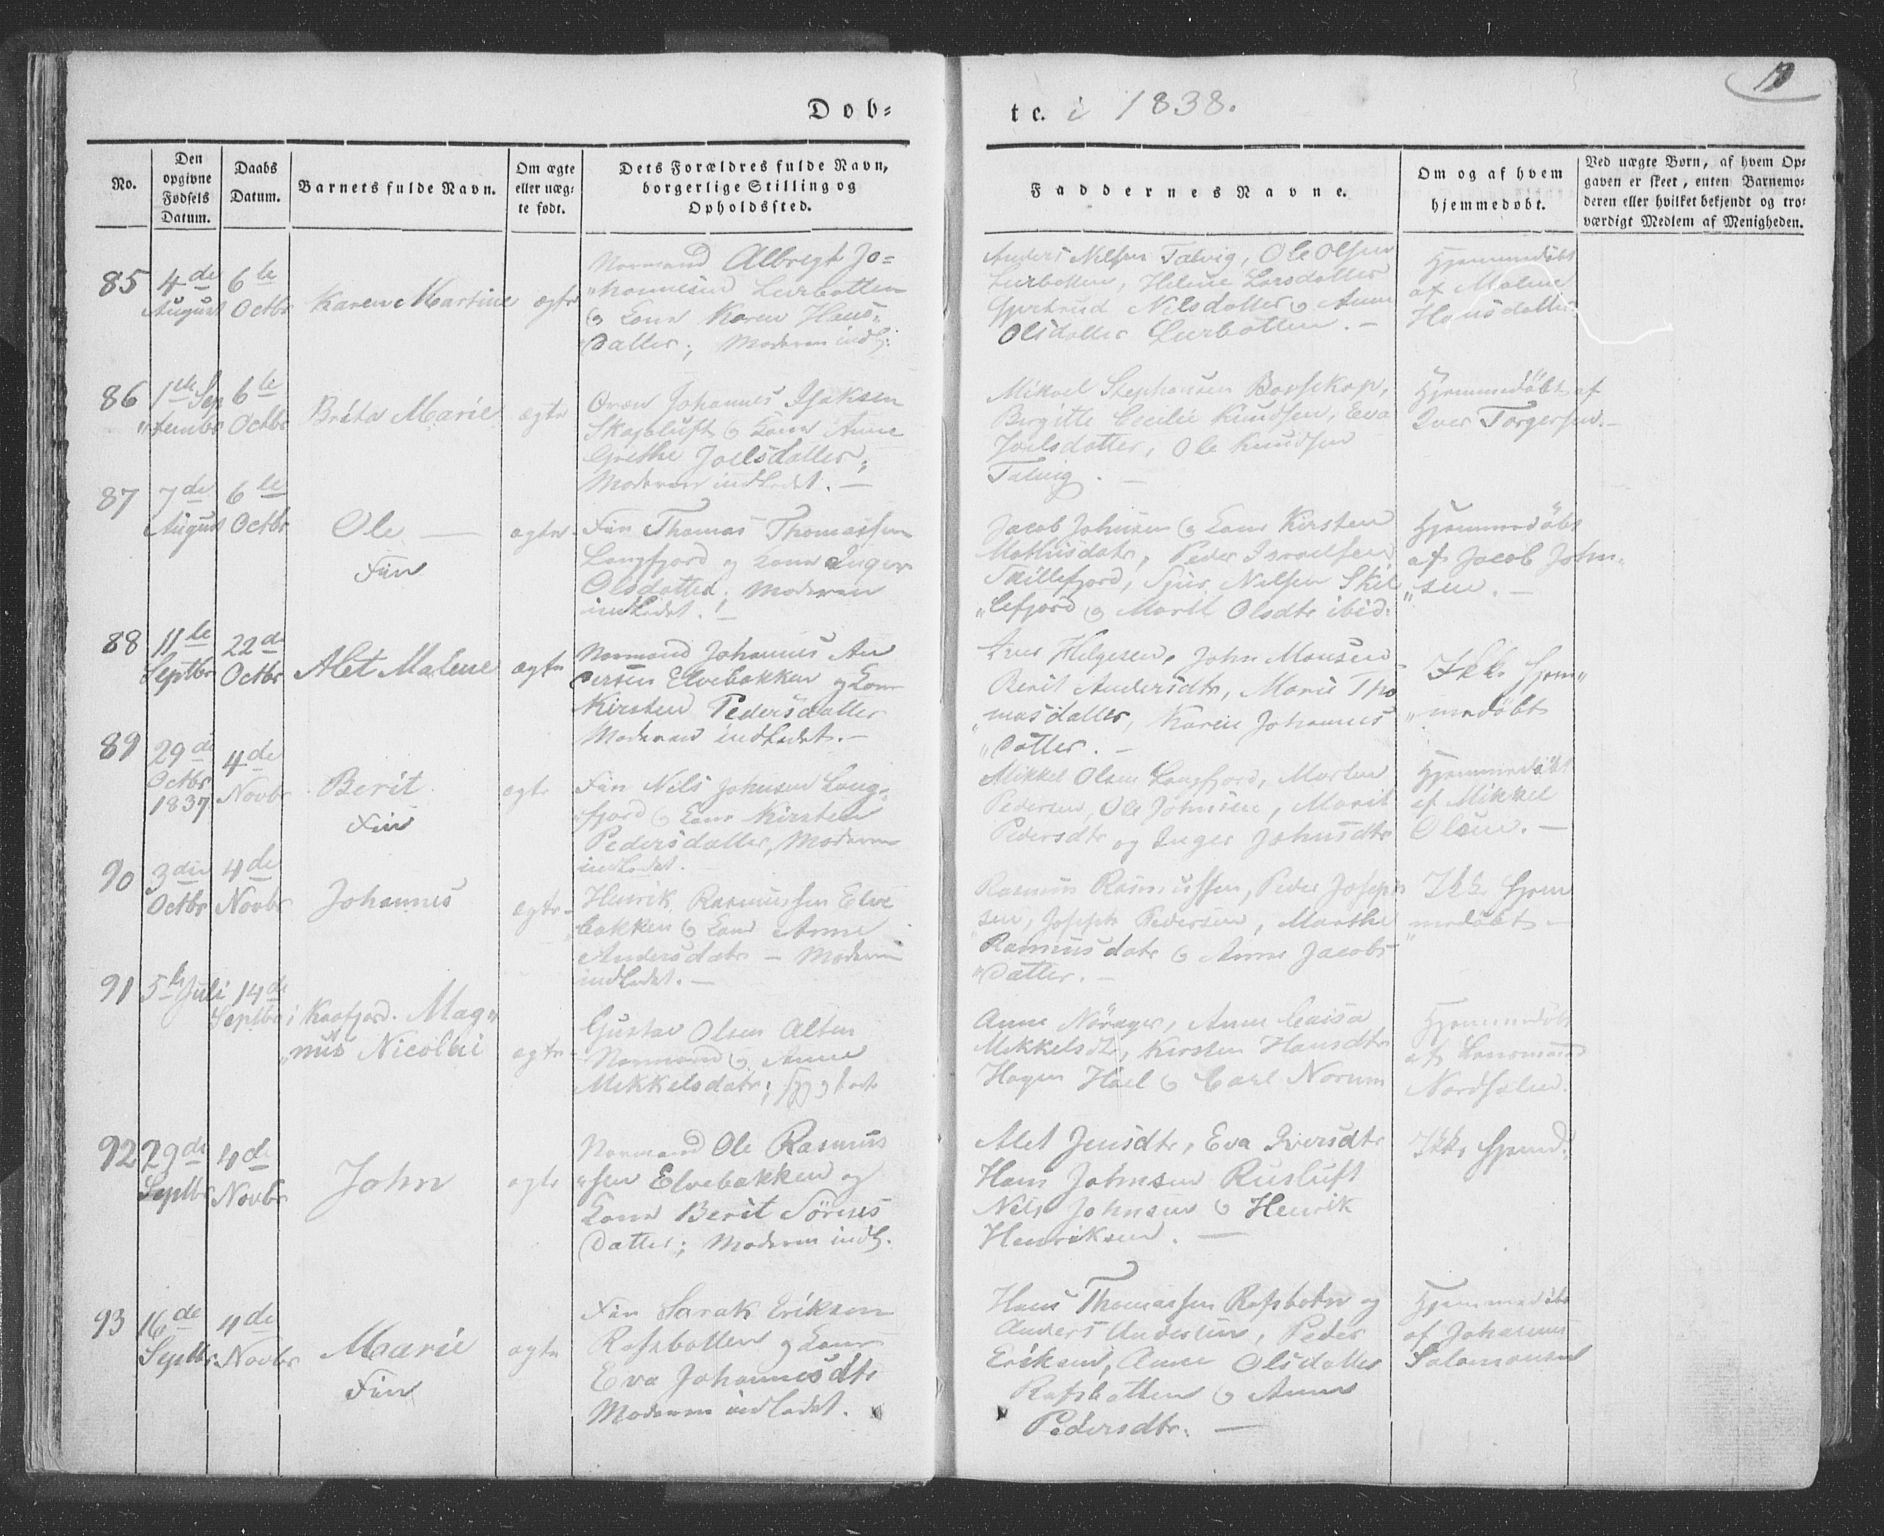 19
Døb-
te. i 1838.
No.
Den opgivne Fødsels Datum.
Daabs Datum.
Barnets fulde Navn.
Om ægte eller uæg-
te født.
Dets Forældres fulde Navn,
borgerlige Stilling og
Opholdssted.
Faddernes Navne.
Om og af hvem
hjemmedøbt.
Ved uægte Børn, af hvem Op-
gaven er skeet, enten Barnemo-
deren eller hvilket bekjendt og tro-
værdigt Medlem af Menigheden.
85
4de August
6te Octbr
Karen Martine
ægte
Normand Albregt Jo-
hannesen Leerbotten
og Kone Karen Hans-
datter; Moderen indl:
Anders Nilsen Talvig, Ole Olsen
Leerbotten, Helene Larsdatter
Gjertrud Nilsdatter og Anne
Olsdatter Leerbotten. —
Hjemmedøbt
af Malene
Hansdatter.
86
1ste Sep
tembr
6te Octbr
Britha Marie
ægte
Qvæn Johannes Isaksen
Skogluft og Kone Anne
Grethe Joelsdatter;
Moderen indledet. —
Mikael Stephansen Bossekop,
Birgitte Cecilie Knudsen, Eva
Joelsdatter, Ole Knudsen
Talvig. —
Hjemmedøbt af
Iver Torgersen. —
87
7de August
6te Octbr
Ole —
Fin
ægte
Fin Thomas Thomassen
Langfjord og Kone Inger
Olsdatter; Moderen
indledet. —
Jacob Johnsen og Kone Kirsten
Mathisdatr, Peder Israelsen
Skillefjord, Sjur Nilsen Skil
lefjord og Marit Olsdtr ibid:
Hjemmedøbt
af Jacob John-
sen. —
88
11te Septbr
22de Octbr
Alet Malene
ægte
Normand Johannes An
dersen Elvebakken og Kone
Kirsten Pedersdatter
Moderen indledet. —
Iver Helgesen, John Monsen
Berit Andersdtr, Marie Tho
masdatter, Karen Johannes
datter. —
Ikke hjem-
medøbt
89
29de Octbr 1837
4de Novbr
Berit
Fin
ægte
Fin Nils Johnsen Lang-
fjord og Kone Kirsten
Pedersdatter, Moderen
indledet. —
Mikkel Olsen Langfjord, Morten
Pedersen, Ole Johnsen, Marit
Pedersdtr og Inger Johnsdtr
Hjemmedøbt
af Mikkel
Olsen. —
90
3die Octbr
4de Novbr
Johannes
ægte
Henrik Rasmussen Elve
bakken og Kone Anne
Andersdatr — Moderen
indledet. —
Rasmus Rasmussen, Peder Joseph
sen, Joseph Pedersen, Marthe
Rasmusdatr og Anne Jacobs
datter. —
Ikke hjem
medøbt —
91
5te Juli
14de Septbr
i Kaafjord. Mag-
nus Nicolai
ægte
Gustav Olsen Alten
Normand og Anne
Mikkelsdatr;
Anne Norager, Anne Caisa
Mikkelsdtr, Kirsten Hansdtr
Hagen Hoel og Carl Norum
Hjemmedøbt
af
Nordhalen.
92
29de Septbr
4de Novbr
John
ægte
Normand Ole Rasmus
sen Elvebakken og
Kone Berit Sörens
datter; Moderen indl.
Alet Jensdtr, Eva Iversdtr
Hans Johnsen Rusluft
Nils Johnsen og Henrik
Henriksen. —
Ikke hjemd.
93
16de Septbr
4de Novbr
Marie
Fin
ægte
Fin Sarak Eriksen
Rafsbotten og Kone
Eva Johannesdtr
Moderen indledet.
Hans Thomassen Rafsbotn og
Anders Andersen, Peder
Eriksen, Anne Olsdatter
Rafsbotten og Anne
Pedersdtr. —
Hjemmedøbt
af Johannes
Salamonsen